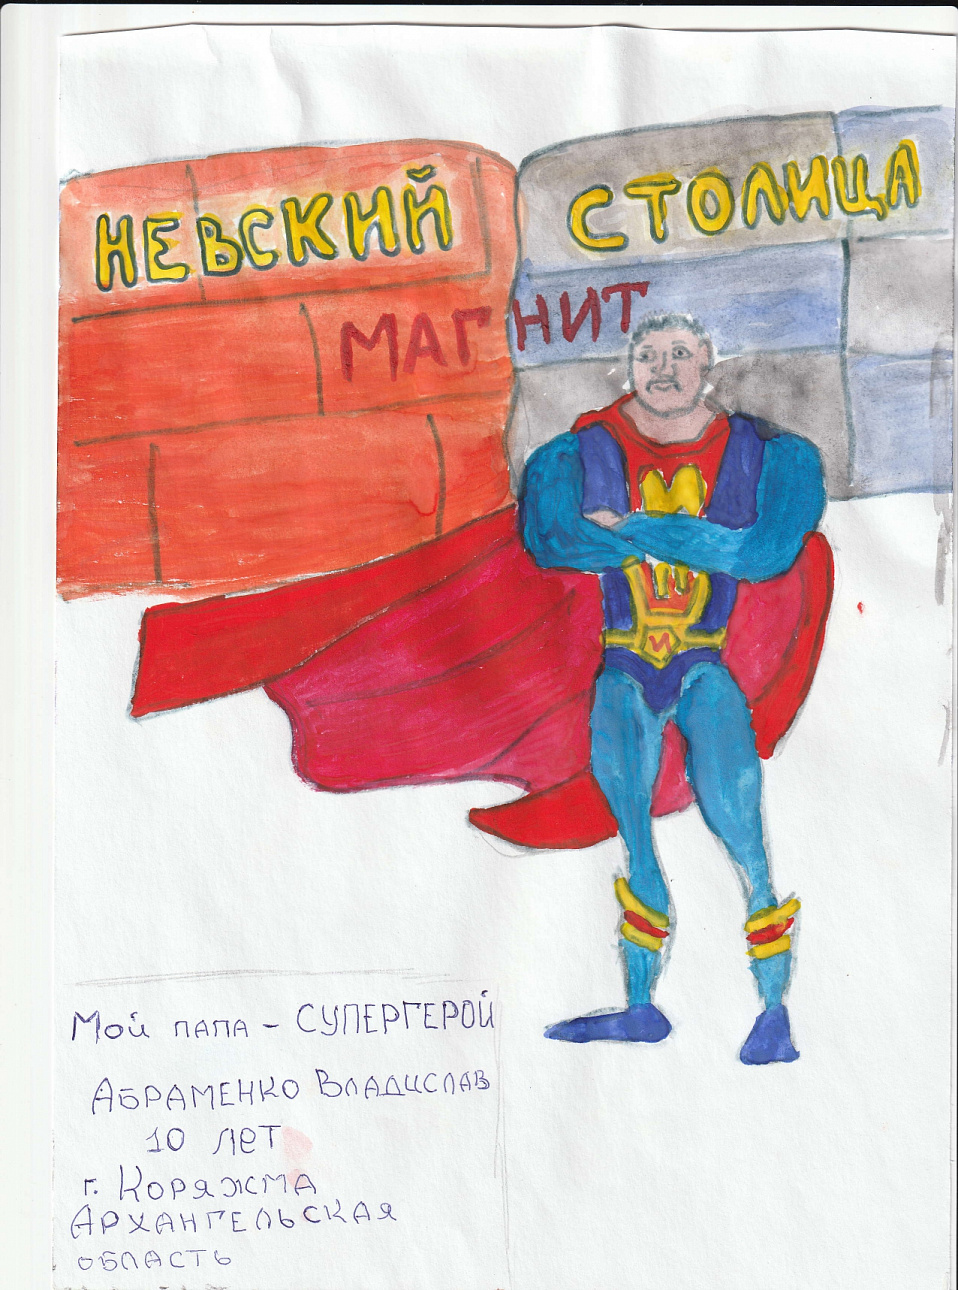 НЕВСКИЙ
СТОЛИЦА
МАГНИТ
М
М
И
Мой папа - СУПЕРГЕРОЙ
АБРАМЕНКО ВЛАДИСЛАВ
10 лет
г. КОРЯЖМА
АРХАНГЕЛЬСКАЯ
ОБЛАСТЬ